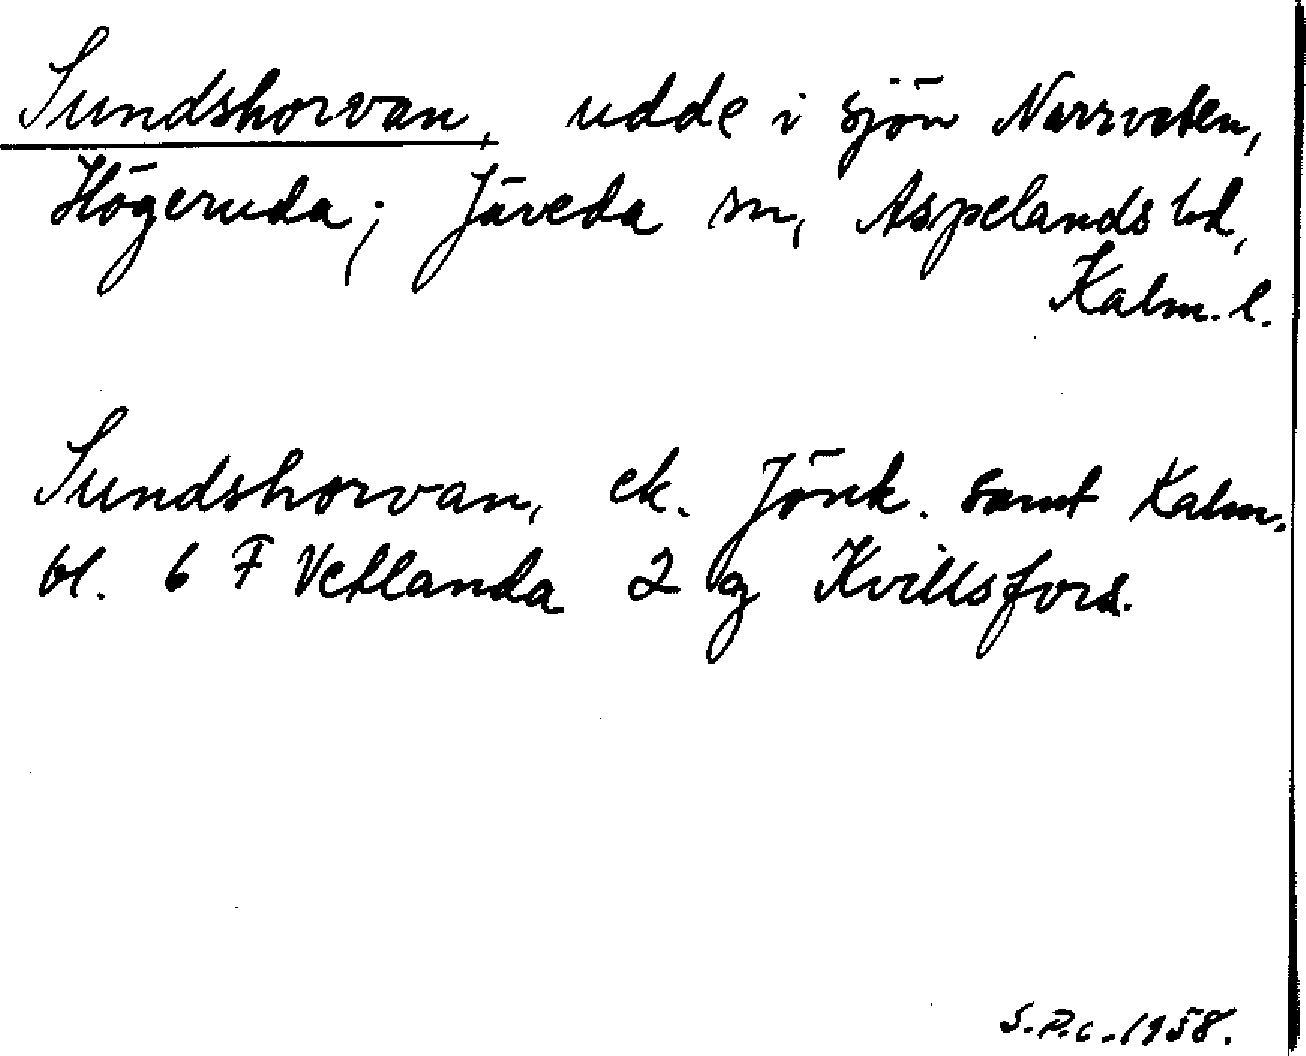 Sundshorvan, udde i sjön Narrveten,
Högeruda; Järeda sn, Aspelands hd,
Kalm. l.
Sundshorvan, ek. Jönk. samt Kalm.
bl. 6 F Vetlanda 2 g Kvillsfors.
S.P.C. 1958.